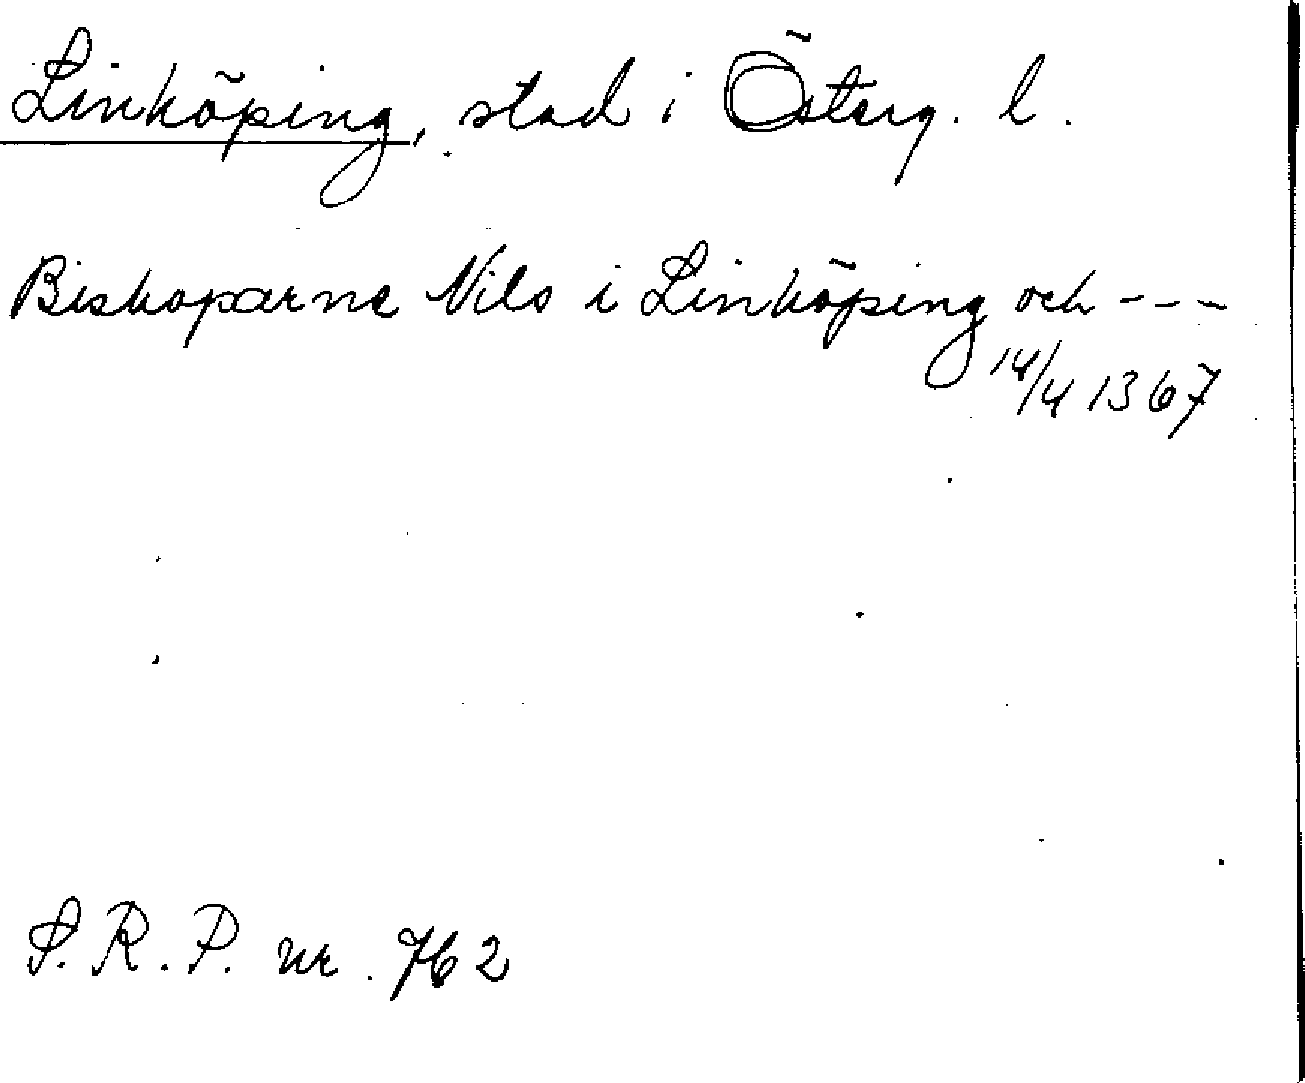 Linköping, stad i Österg. l.
Biskoparne Nils i Linköping och ---
14/4 1367
S.R.P. nr. 762